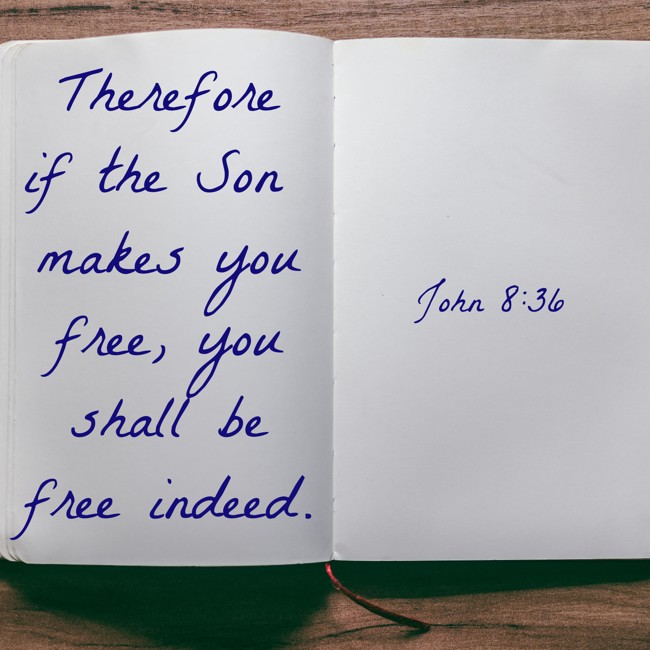 Therefore
if the Son
makes you
free, you
shall be
free indeed.
John 8:36